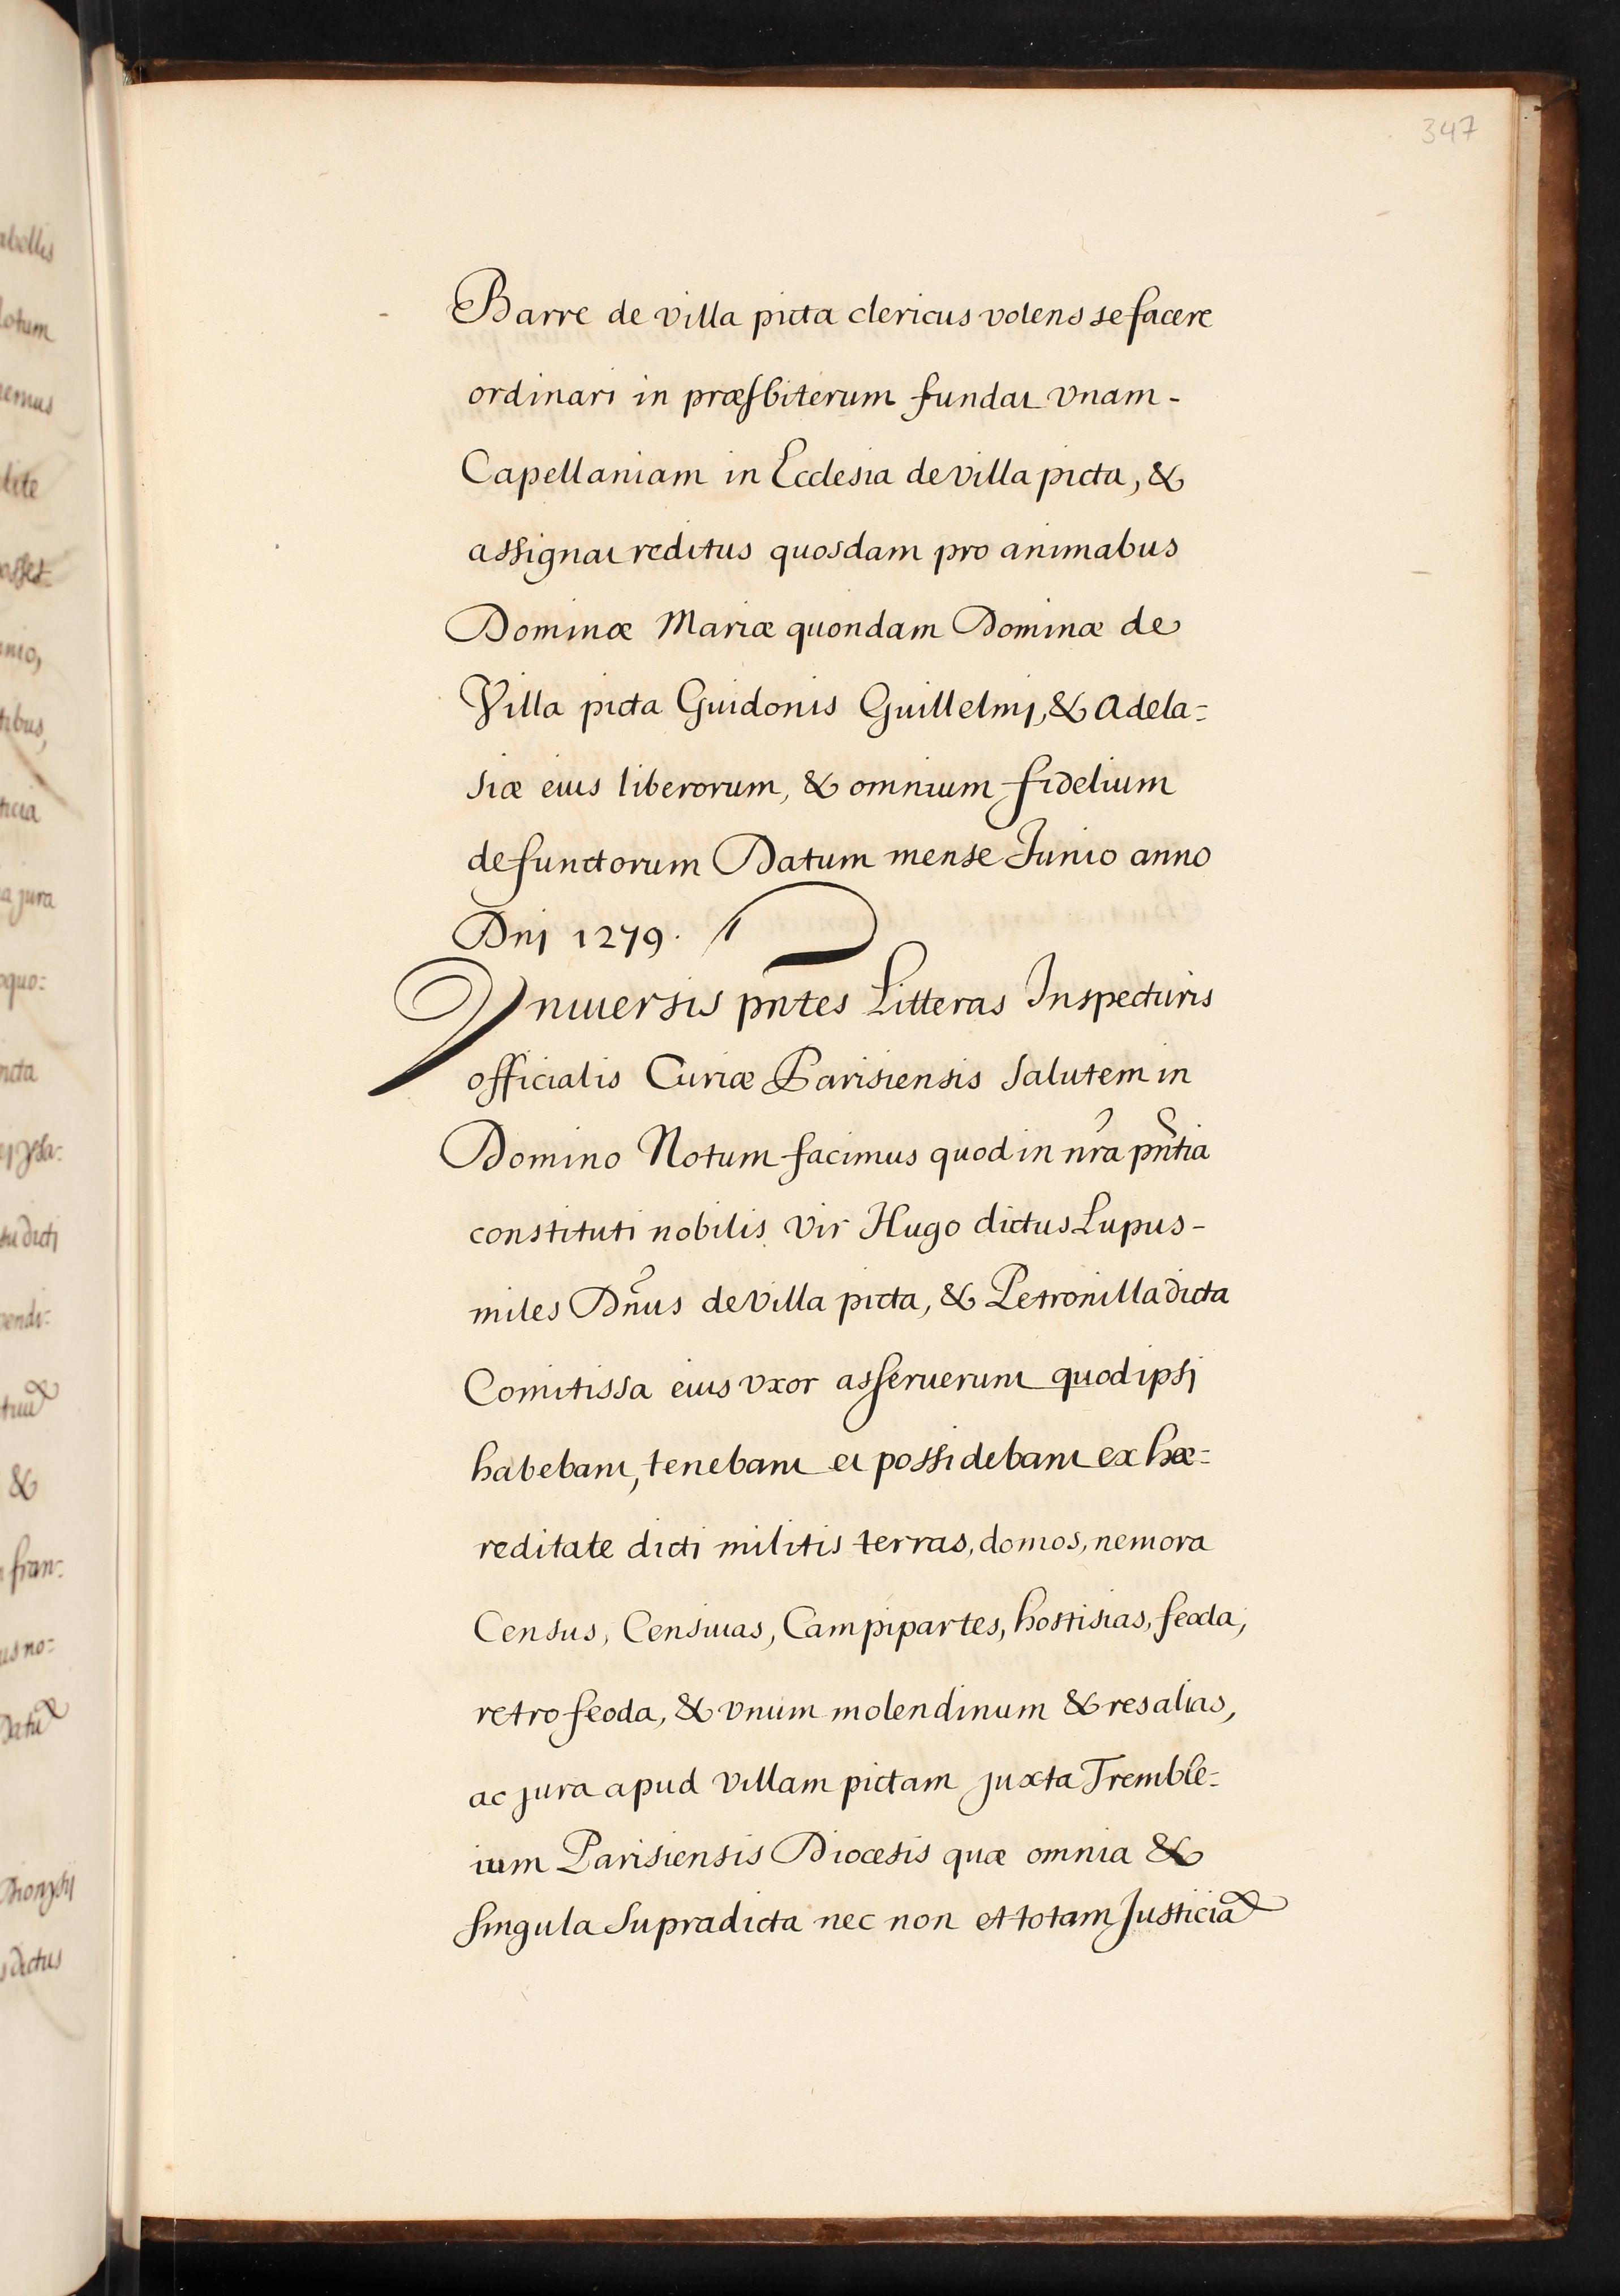 347
Barre de villa picta clericus volens se facere
ordinari in præsbiterum fundat vnam -
Capellaniam in Ecclesia de villa picta, &
assignat reditus quosdam pro animabus
Dominæ Mariæ quondam Dominæ de
Villa picta Guidonis Guillelmj, & Adela=
siæ eius liberorum, & omnium fidelium
defunctorum Datum mense Junio anno
Dnj 1279.
Vniuersis pntes Litteras Inspecturis
officialis Curiæ Parisiensis Salutem in
Domino Notum facimus quod in nr̃a pñtia
constituti nobilis vir Hugo dictus Lupus -
miles Dñus de villa picta, & Petronilla dicta
Comitissa eius vxor asseruerunt quod ipsj
habebant, tenebant et possidebant ex hæ=
reditate dicti militis terras, domos, nemora
Census, Censiuas, Campipartes, hostisias, feoda,
retrofeoda, & vnum molendinum & res alias,
ac jura apud villam pictam juxta Tremble=
ium Parisiensis Diocesis quæ omnia &
singula supradicta nec non et totam Justiciã
abellis
lotum
nemus
lite
asset
nio,
tibus,
ticia
a jura
oquo:
ncta
ej ysa:
tu dicti
pendi:
tuũ
&
fran:
us no:
Datũ
Dionysij
s dictus